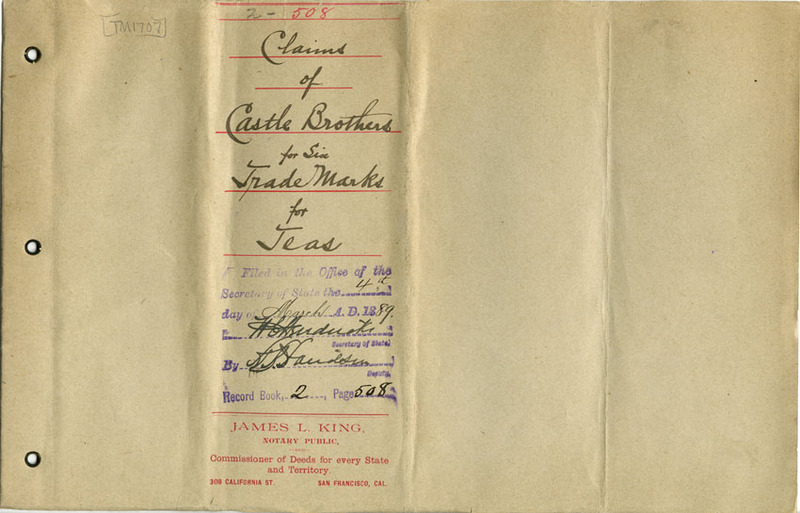 TM1707
2- 508
Claims
of
Castle Brothers
for Six
Trade Marks
for
Teas
Filed in the Office of the
Secretary of State the 4th
day of March A.D. 1889.
Secretary of State
By
Deputy
Record Book, 2, Page 508
JAMES L. KING,
NOTARY PUBLIC,
Commissioner of Deeds for every State
and Territory.
308 CALIFORNIA ST. SAN FRANCISCO, CAL.